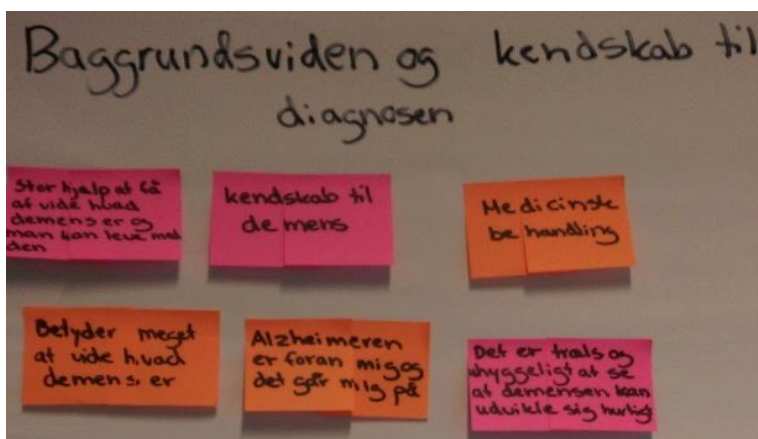 Baggrundsviden og kendskab til
diagnosen
Stor hjælp at få
at vide hvad
demens er og
man kan leve med
den
kendskab til
demens
Medicinsk
behandling
Betyder meget
at vide hvad
demens er
Alzheimeren
er foran mig og
det går mig på
Det er træls og
uhyggeligt at se
at demensen kan
udvikle sig hurtigt